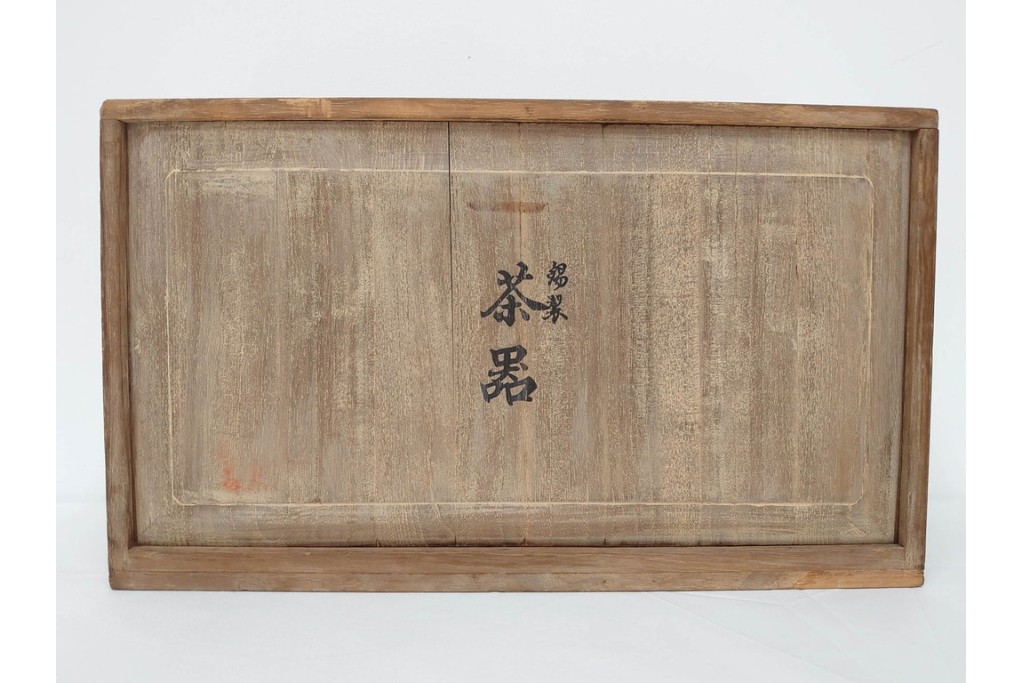 錫製
茶器